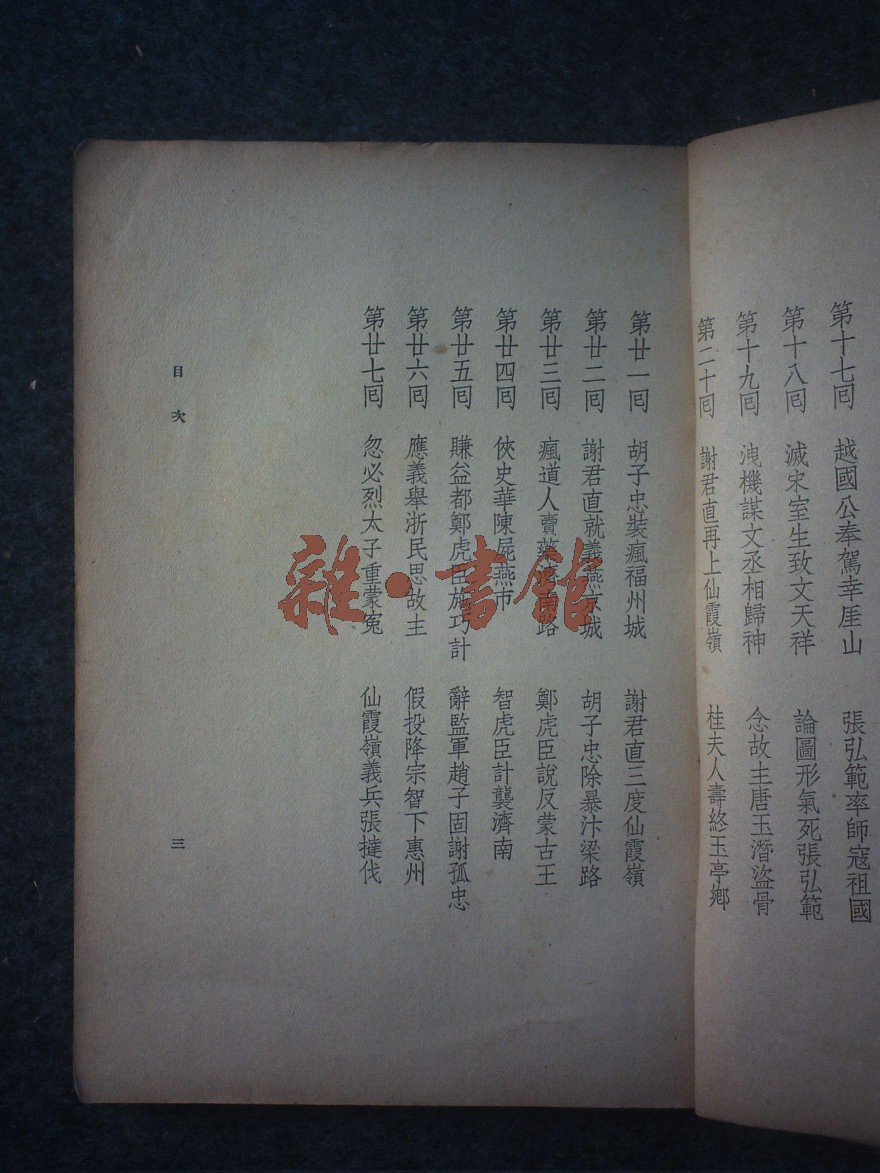 第十七囘 越國公奉駕幸厓山 張弘範率師寇祖國
第十八囘 滅宋室生致文天祥 論圖形氣死張弘範
第十九囘 洩機謀文丞相歸神 念故主唐玉潛盜骨
第二十囘 謝君直再上仙霞嶺 桂夫人壽終玉亭鄉
第廿一囘 胡子忠裝瘋福州城 謝君直三度仙霞嶺
第廿二囘 謝君直就義燕京城 胡子忠除暴汴梁路
第廿三囘 瘋道人賣藥 路 鄭虎臣說反蒙古王
第廿四囘 俠史華陳屍燕市 智虎臣計襲濟南
第廿五囘 賺益都鄭虎臣施巧計 辭監軍趙子固謝孤忠
第廿六囘 應義舉浙民思故主 假投降宗智下惠州
第廿七囘 忽必烈太子重蒙寃 仙霞嶺義兵張撻伐
目次
三
雜·書館